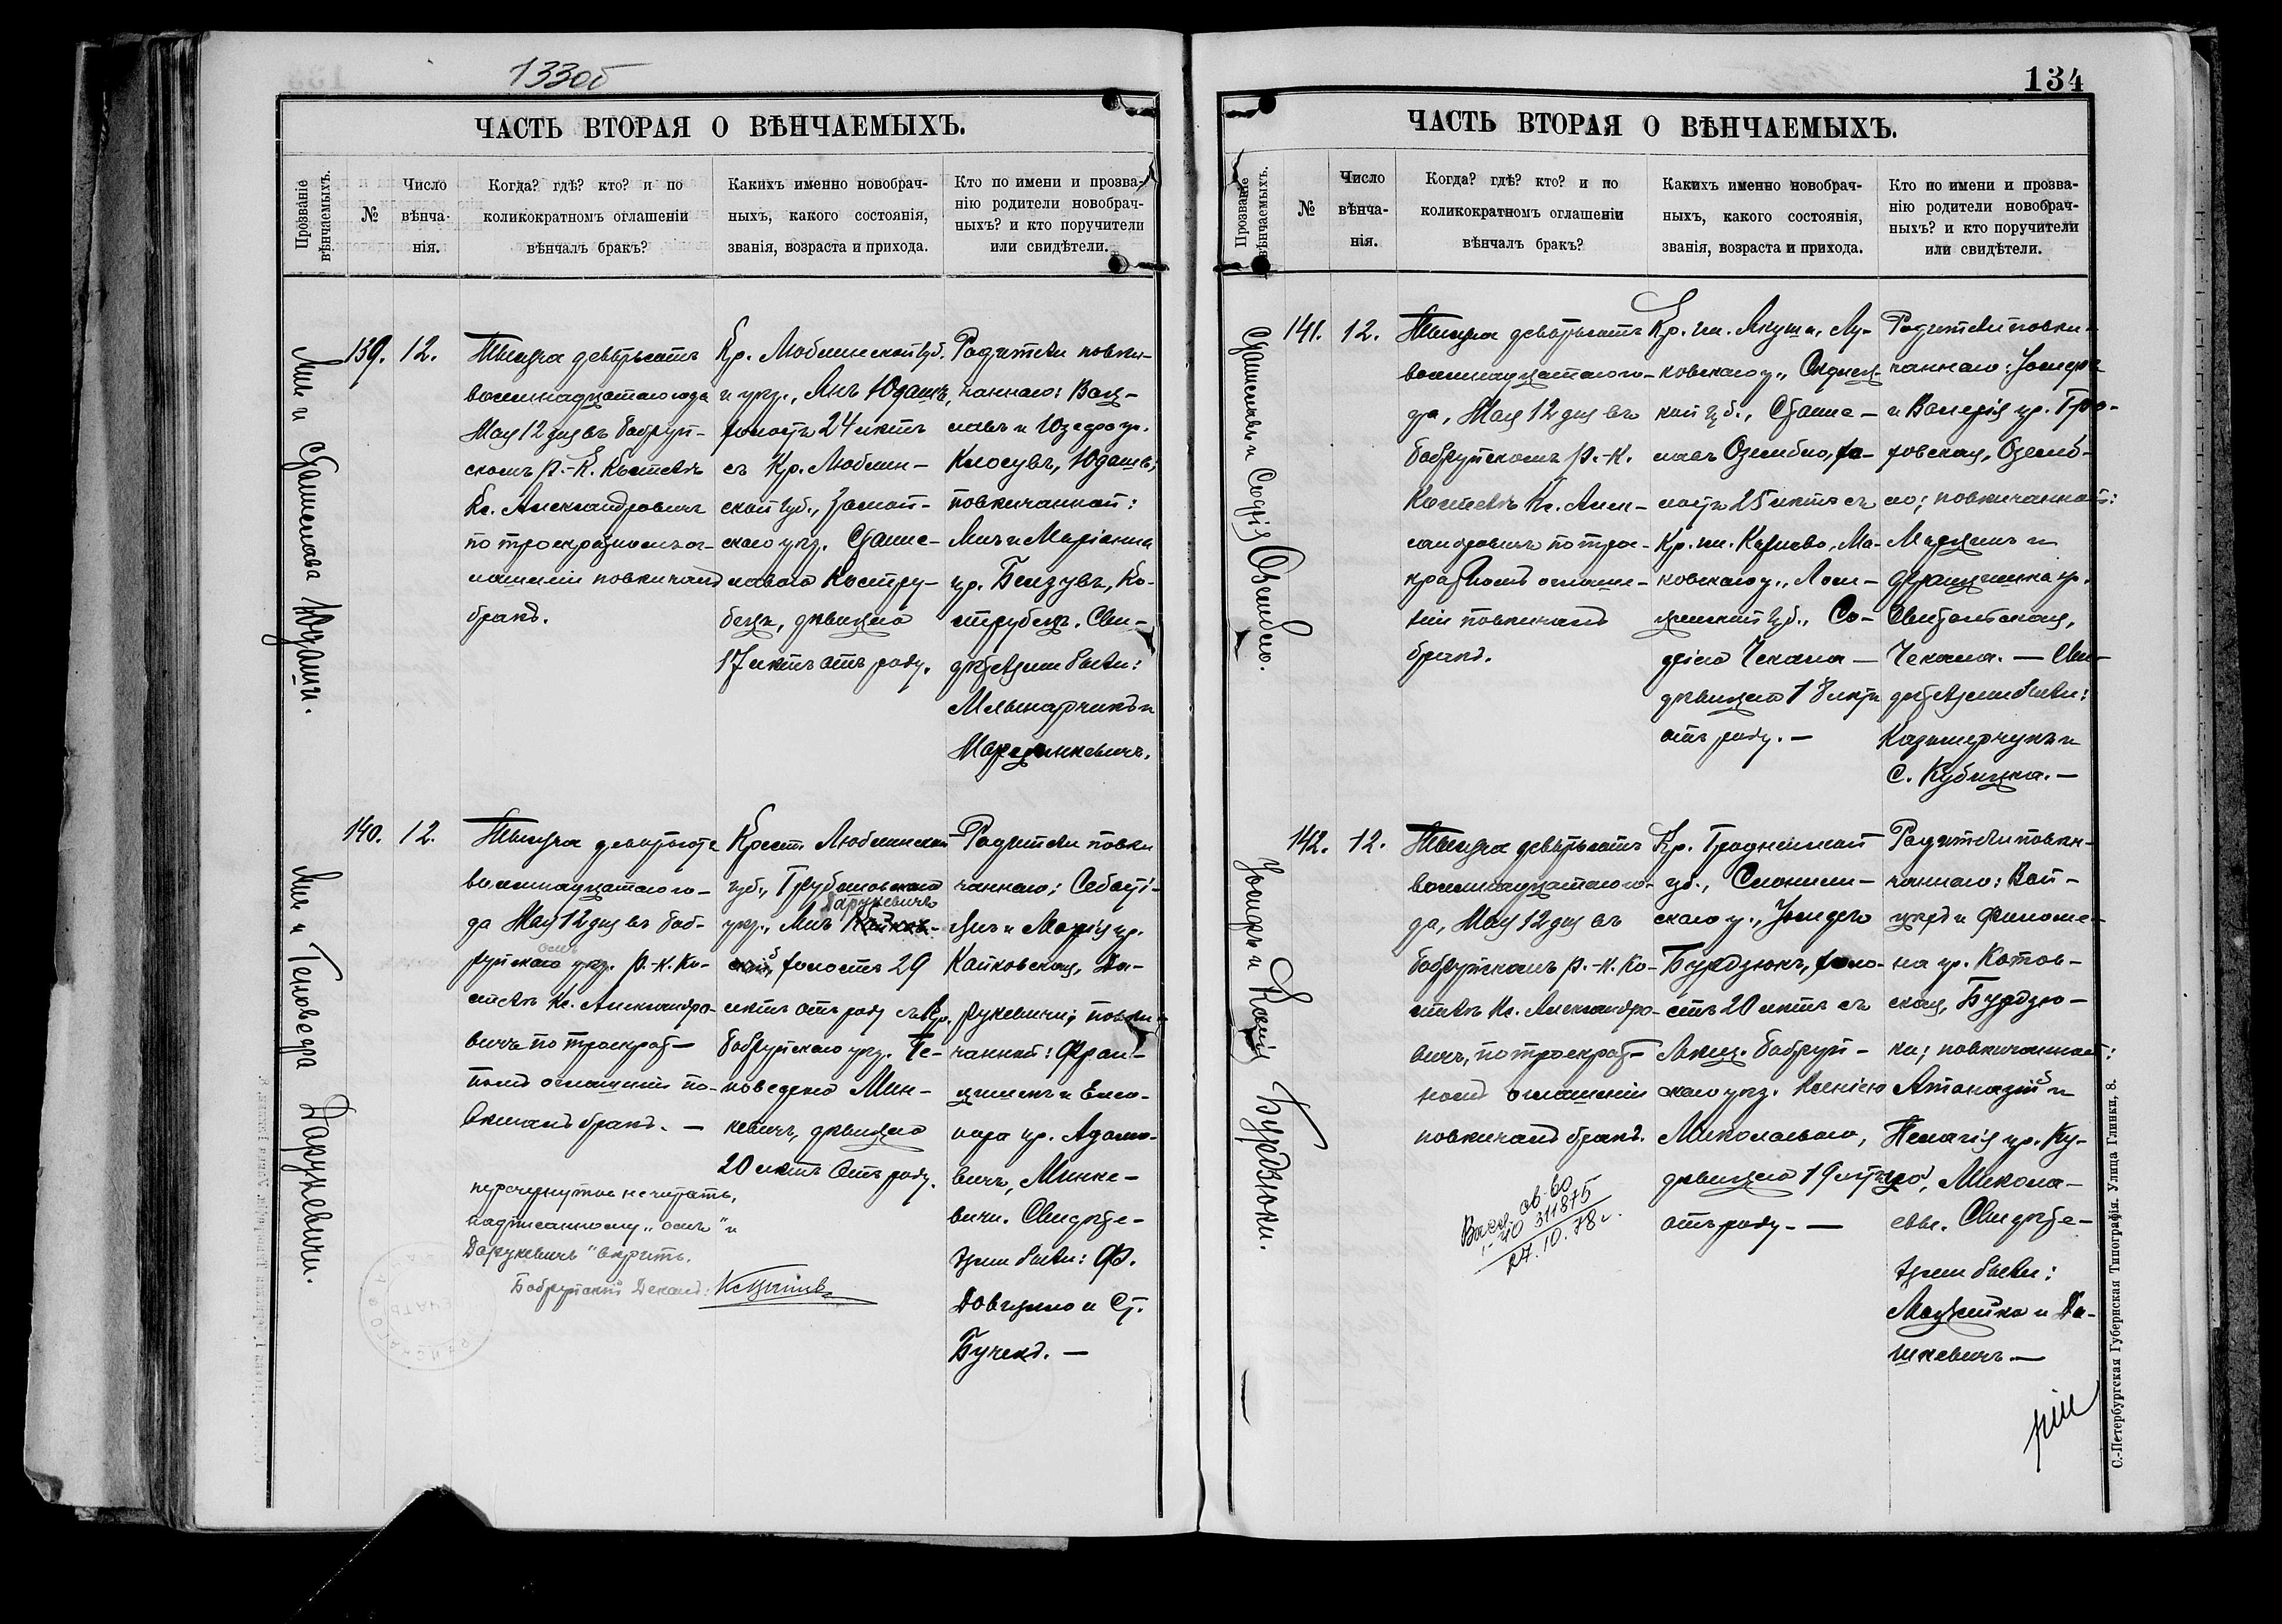 133об
ЧАСТЬ ВТОРАЯ О ВѢНЧАЕМЫХЪ.
Прозваніе вѣнчаемыхъ.
№
Число вѣнча-
нія.
Когда? гдѣ? кто? и по
коликократномъ оглашеніи
вѣнчалъ бракъ?
Какихъ именно новобрач-
ныхъ, какого состоянія,
званія, возраста и прихода.
Кто по имени и прозва-
нію родители новобрач-
ныхъ? и кто поручители
или свидѣтели.
Янъ и Станислава Юдаши.
139.
12.
Тысяча девятьсотъ
восемнадцатаго года
Мая 12 дня въ Бобруй-
скомъ Р.-К. Костелѣ
Кс. Александровичъ
по троекратномъ ог-
лашеніи повѣнчалъ
бракъ.
Кр. Люблинской губ.
и уѣз., Янъ Юдашъ,
холостъ 24 лѣтъ
съ Кр. Люблин-
ской губ., Замой-
скаго уѣз. Станис-
лавою Костру-
бецъ, дѣвицею
17 лѣтъ отъ роду.
Родители повѣн-
чаннаго: Вац-
лавъ и Юзефа ур.
Клосувъ, Юдашъ;
повѣнчанной:
Янъ и Маріанна
ур. Бензувъ, Ко-
струбецъ. Сви-
дѣтелями были:
Мльинарчикъ и
Марцинкевичъ.
Янъ и Геновефа Дарукевичи.
140.
12.
Тысяча девятьсотъ
восемнадцатаго го-
да Мая 12 дня въ Боб-
руйскаго омъ уѣз. Р.-К. Ко-
стелѣ Кс. Александро-
вичъ по троекрат-
номъ оглашеніи по-
вѣнчалъ бракъ. —
Крест. Люблинской
губ., Грубешовскаго
уѣз., Янъ Дарукевичъ Кайков-
скій, холостъ 29
лѣтъ отъ роду съ Кр.
Бобруйскаго уѣз. Ге-
новефою Мин-
кевичъ, дѣвицею
20 лѣтъ отъ роду.
Родители повѣн
чаннаго: Себасті-
янъ и Марія ур.
Кайковская, Да-
рукевичи; повѣн-
чанной: Фран-
цишекъ и Елео-
нора ур. Адамо-
вичъ, Минке-
вичи. Свидѣте-
лями были: Ф.
Довгялло и Ст.
Бучекъ. —
перечеркнутое не читать,
надписанному „омъ" и
Дарукевичъ" вѣрить.
Бобруйскій Деканъ:
134
ЧАСТЬ ВТОРАЯ О ВѢНЧАЕМЫХЪ.
Прозваніе вѣнчаемыхъ.
№
Число
вѣнча-
нія.
Когда? гдѣ? кто? и по
коликократномъ оглашеніи
вѣнчалъ бракъ?
Какихъ именно новобрач-
ныхъ, какого состоянія,
званія, возраста и прихода.
Кто по имени и прозва-
нію родители новобрач-
ныхъ? и кто поручители
или свидѣтели.
Станиславъ и Софія
141.
12.
Тысяча девятьсотъ
восемнадцатаго го-
да, Мая 12 дня въ
Бобруйскомъ Р.-К.
Костелѣ Кс. Алек-
сандровичъ по трое-
кратномъ оглаше-
ніи повѣнчалъ
бракъ.
Кр. гм. Лу-
ковскаго у., Сѣдлец-
кой губ., Станис-
лавъ хо-
лостъ 25 лѣтъ съ
Кр. гм. Ма-
ковскаго у., Лом-
жинской губ., Со-
фіею Чекала —
дѣвицею 18 лѣтъ
отъ роду. —
Родители повѣн-
чаннаго: Іосифъ
и Валерія ур. Гро-
ховская,
повѣнчанной:
Марцинъ и
Францишка ур.
Чекала. — Сви-
дѣтелями были:
Казимерчукъ и
С. Кубицка. —
Іосифъ и Ксенія Бурдзюки.
142.
12.
Тысяча девятьсотъ
восемнадцатаго го-
да, Мая 12 дня въ
Бобруйскомъ Р.-К. Ко-
стелѣ Кс. Александро-
вичъ, по троекрат-
номъ оглашеніи
повѣнчалъ бракъ.
Кр. Гродненской
губ., Слоним-
скаго у., Іосифъ
Бурдзюкъ, холо-
стъ 20 лѣтъ съ
мѣщ. Бобруй-
скаго уѣз. Ксеніею
Миколаевою,
дѣвицею 19 лѣтъ
отъ роду. —
Родители повѣн-
чаннаго: Вой-
цѣхъ и Филоме-
на ур. Котов-
ская, Бурдзю-
ки; повѣнчанной:
Атаназій и
Пелагія ур. Ку-
Микола-
евы. Свидѣте-
лями были:
и Да-
шкевичъ. —
311875
27.10.78г.
С.-Петербургская Губернская Типографія. Улица Глинки, 8.